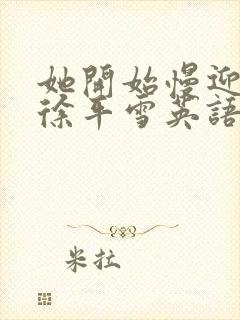 她開始慢迎
徐平雪英語
米拉